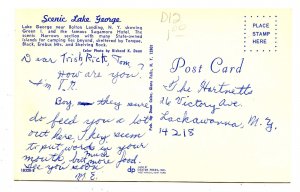 Scenic Lake George
Lake George near Bolton Landing, N. Y. showing
Green I. and the famous Sagamore Hotel. The
scenic Narrows section with many State-owned
islands for camping lies beyond, sheltered by Tongue,
Black, Erebus Mts. and Shelving Rock.
Color Photo by Richard K. Dean
D12
PLACE
STAMP
HERE
Post Card
Dear Trish, Rick, Tom,
How are you.
I'm
Boy they sure
do feed you a lot
out here. They seem
to put words in your
mouth, but much more food.
See you soon
M.E.
The Hartnetts
26 Victory Ave
Lackawanna, N.Y.
14218
dp